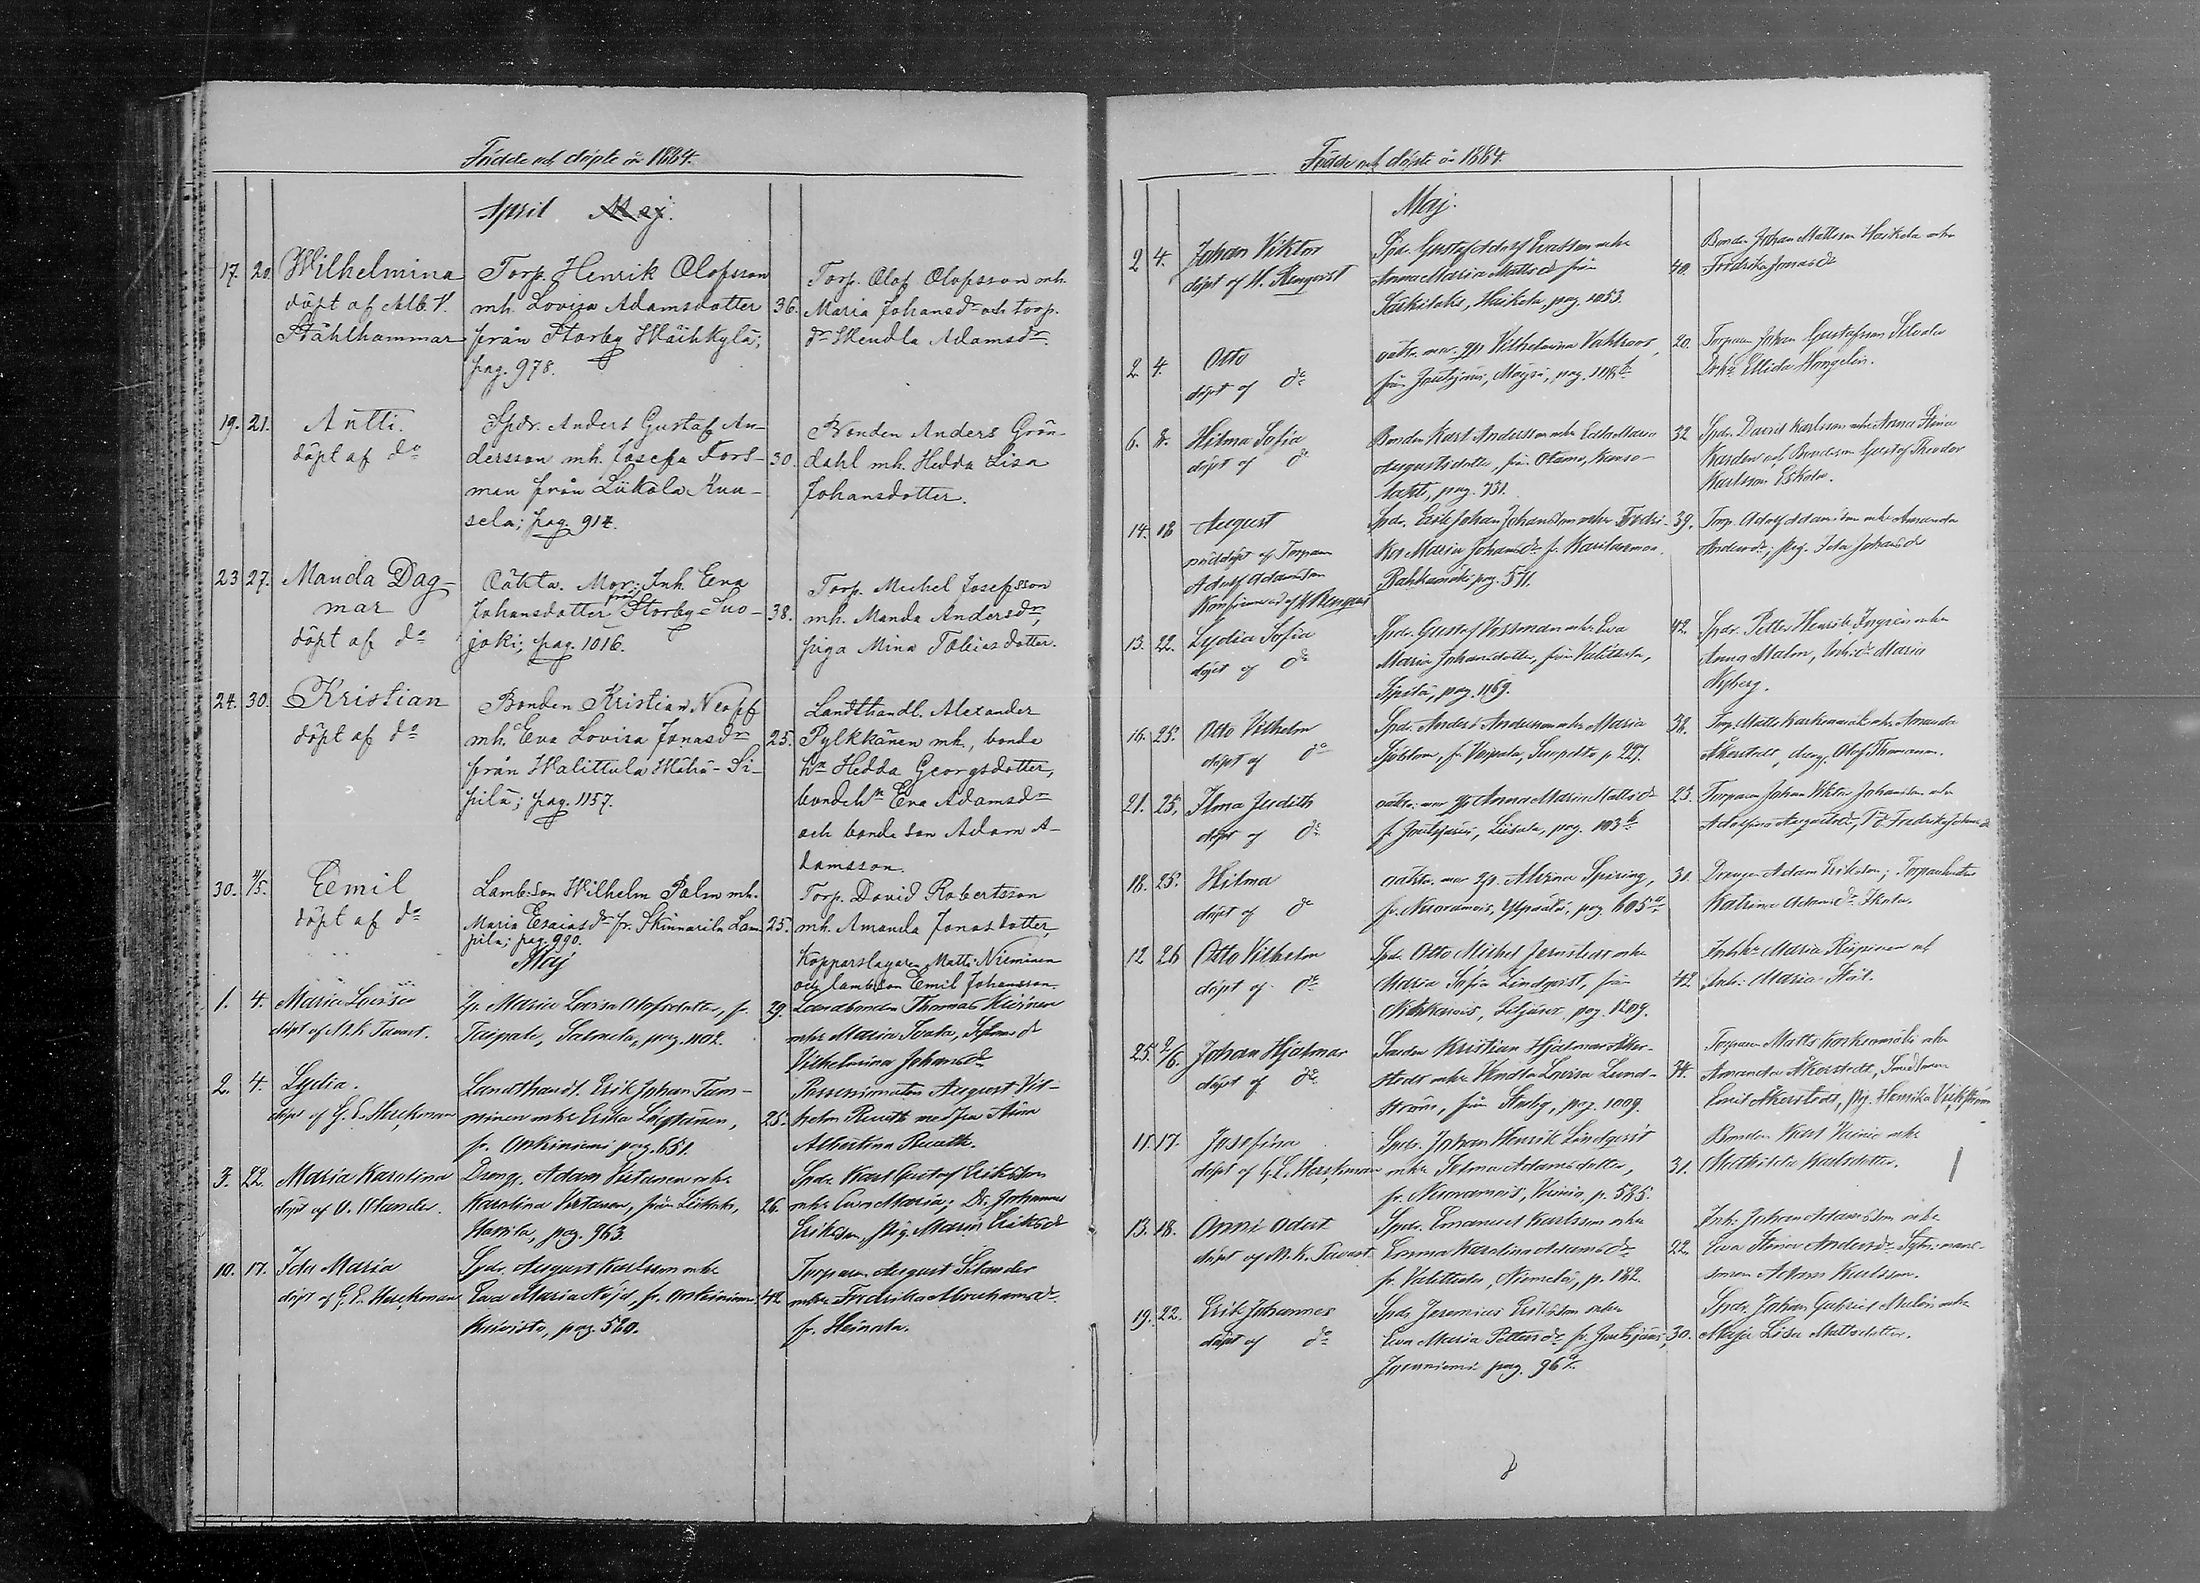 Födde och döpte år 1884.
April Maj.
17. 20. Wilhelmina
döpt af Alb. V.
Ståhlhammar
Torp. Henrik Olofsson
mh. Lovisa Adamsdotter
från Storby Wähkylä;
pag. 978.
36.
Torp. Olof Olofsson mh.
Maria Johansdr och torp.
dr Hendla Adamsdr
19. 21. Antti.
döpt af do
Spdr. Anders Gustaf An-
dersson mh. Josefa Fors-
man från Liikola Knu-
sela; pag. 914.
30.
Bonden Anders Grön-
dahl mh. Hedda Lisa
Johansdotter.
23 27. Manda Dag-
mar
döpt af do
Oäkta. Mor: Inh. Eva
Johansdotter från Storby Suo-
joki; pag. 1016.
38.
Torp. Michel Josefsson
mh. Manda Andersdr,
piga Mina Tobiasdotter.
24. 30. Kristian
döpt af do
Bonden Kristian Neoff
mh. Eva Lovisa Jonasdr
från Walittula Wähä-Si-
pilä; pag. 1157.
25.
Landthandl. Alexander
Pylkkänen mh., bonde
hn Hedda Georgsdotter,
bondehn Eva Adamsdr
och bondeson Adam A-
damsson.
30. 4/5. Eemil
döpt af do
Lamb:son Wilhelm Palm mh.
Maria Esaiasdr fr. Skinnarila Lam-
pila; pag. 990.
25.
Torp. David Robertsson
mh. Amanda Jonasdotter,
Kopparslagaren Matti Nieminen
och lamb:son Emil Johansson.
Maj
1. 4. Maria Lovisa
döpt af M. K. Tavast.
Pig. Maria Lovisa Olofsdotter, fr.
Taipale, Salmela, pag. 1102.
29.
Landbonden Thomas
mhu Maria
Vilhelmina Johansdr
2. 4. Lydia.
döpt af G. E. Herckman
Landthandl. Erik Johan Tam-
minen mhu Erika
fr. Onkiniemi pag. 651.
25.
Possessionaten August Vil-
helm Rueth med
Albertina Rueth.
3. 22. Maria Karolina
döpt af O. Elander.
Dreng. Adam Virtanen mhu
Karolina Virtanen, från Liikola,
pag. 963.
26.
Spdr. Karl Gustaf Eriksson
mhu Eva Maria; Dr. Johannes
Eriksson, pig. Maria Eriksdr
10. 17. Ida Maria
döpt af G. E. Herckman
Spdr. August Karlsson mhu
Eva Maria Nöjd, fr. Onkiniemi
Kuivisto, pag. 560.
42
Torparen August Silander
mhu Fredrika Abrahamsdr
fr. Heinola.
Födde och döpte år 1884.
Maj.
2 4. Johan Viktor
döpt af K. Renqvist
Spdr. Gustaf Adolf Evertsson mhu
Anna Maria Mattsdr från
Säskilaks, Haikola, pag. 1053.
40.
Bonden Johan Mattsson Haikola mhu
Fredrika Jonasdr
2. 4. Otto
döpt af do
oäkta. mor. pig. Vilhelmina Vahlroos,
från Joutsjärvi,
20.
Torparen Johan Gustafsson
Ellida Hongelin.
6. 8. Hilma Sofia
döpt af do
Bonden Karl Andersson mhu Edla Maria
Augustsdotter, från Otamo,
pag. 731.
32
Spdr. David Karlsson mhu Anna Stina
Gustaf Theodor
Karlsson Eskola.
14. 18 August
nöddöpt af Torparen
Adolf Adamsson
Konfirmerad af K. Renqvist
Spdr. Erik Johan Johansson mhu Fredri-
ka Maria Johansdr fr. Karilanmaa
Rahkamäki pag. 571.
39.
Torp. Adolf Adamsson mhu Amanda
Andersdr; pig. Ida Johansdr
13. 22. Lydia Sofia
döpt af do
Spdr. Gustaf Vessman mhu Eva
Maria Johansdotter, från Valittula,
Sipilä, pag. 1169.
42.
Spdr. Petter Henrik Ingren mhu
Anna Malm, Inh:dr Maria
Nyberg.
16. 25. Otto Vilhelm
döpt af do
Spdr. Anders Andersson mhu Maria
Sjöblom, fr. Vaipala, p. 227.
32.
Torp. Matts Korkeamäki mhu Amanda
Åkerstedt, dreng. Olof Thomasson.
21. 25. Ilma Judith
döpt af do
oäkta. mor pig. Anna Maria Mattsdr
fr. Joutsjärvi,
23.
Torparen Johan Viktor Johansson mhu
Adolfina Augustsdr, Fredrika Johansdr
18. 25. Hilma
döpt af do
oäkta. mor pig. Alvina Spiring,
fr. Nuoramois, pag. 605a
31.
Drengen Adam Eriksson; Torparehustr.
Katrina Adamsdr
12 26 Otto Vilhelm
döpt af do
Spdr. Otto Michel Jernstedt mhu
Maria Sofia Lindqvist, från
pag. 1209.
42
Maria och
Inh: Maria
25. 2/6. Johan Hjalmar
döpt af do
Smeden Kristian Hjalmar Åker-
stedt mhu Vendla Lovisa Lund-
ström, från Storby, pag. 1009.
24.
Torparen Matts Korkeamäki mhu
Amanda Åkerstedt,
Emil Åkerstedt, pig. Henrika Vickström
11. 17. Josefina
döpt af G. E. Herckman
Spdr. Johan Henrik Lindqvist
mhu Selma Adamsdotter,
fr. Nuoramois, p. 585.
31.
Bonden Karl mhu
Mathilda Karlsdotter.
13. 18. Anni
döpt af M. K. Tavast
Spdr. Emanuel Karlsson mhu
Emma Karolina Adamsdr
fr. Valittula, Niemelä, p. 1182.
22.
Inh: Johan Adamsson mhu
Eva Stina Andersdr
Adam Karlsson.
19. 22. Erik Johannes
döpt af do
Spdr. Jeremias Eriksson mhu
Eva Maria Pettersdr fr. Joutsjärvi,
pag. 967.
30.
Spdr. Johan Gabriel mhu
Maja Lisa Mattsdotter.